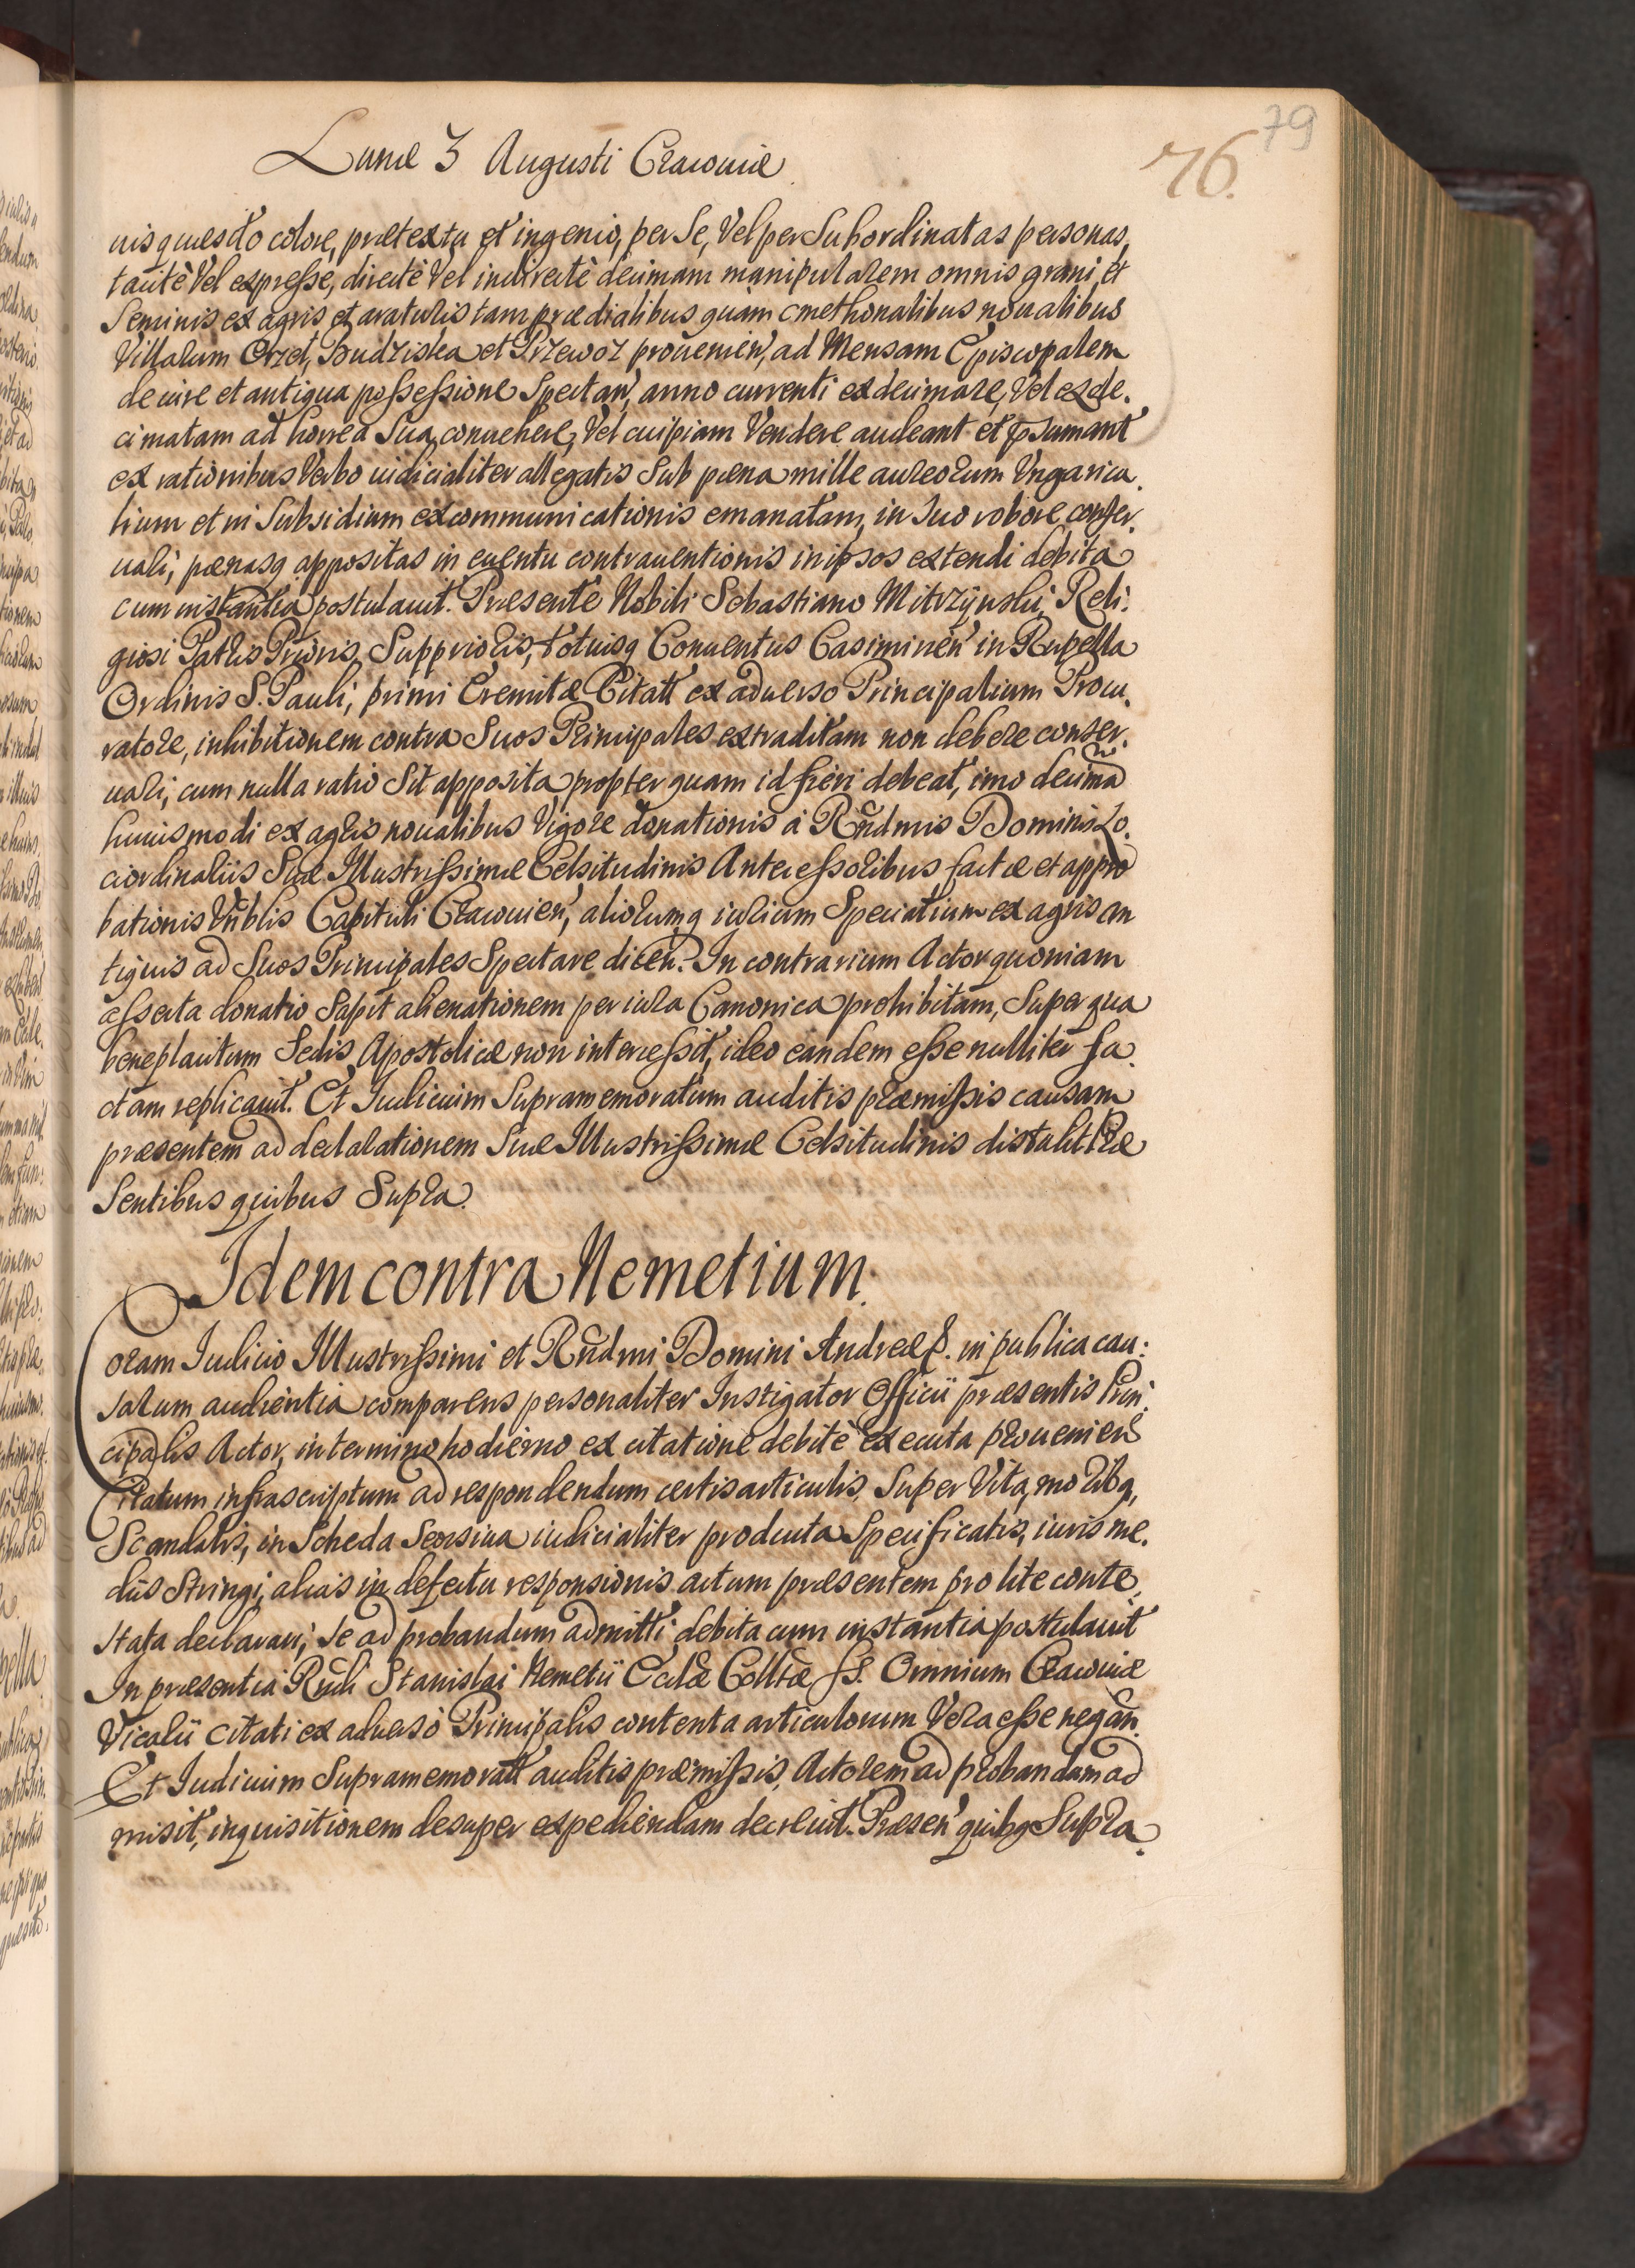 79
76.
Lunæ 3 Augusti Cracouiæ
uisquæsito colore, prætextu et ingenio, per Se, Vel per Subordinatas personas,
tacitè Vel expresse, directè Vel indirectè decimam manipularem omnis grani, et
Seminis ex agris et araturis tam prædialibus quàm cmethonalibus noualibus
Villarum Orzel, Budziska et Przewoz prouenien', ad Mensam Episcopalem
de iure et antiqua possessione Spectan', anno currenti exdecimare, Vel exde.
cimatam ad horrea Sua conuehere, Vel cuipiam Vendere audeant et psumant
ex rationibus Verbo iudicialiter allegatis Sub pœna mille aureorum Vngarica.
lium et in Subsidium excommunicationis emanatam, in Suo robore conser.
uari, pœnasq appositas in euentu contrauentionis in ipsos extendi debita
cum instantia postulauit. Præsente Nobili Sebastiano Mitrzynski, Reli:
giosi Patris Prioris, Supprioris, totiusq Conuentus Casimirien' in Rupella
Ordinis S. Pauli, primi Eremitæ Citatt ex aduerso Principalium Procu.
ratore, inhibitionem contra Suos Principales extraditam non debere conser.
uari, cum nulla ratio Sit apposita propter quam id fieri debeat, imo decima
huiusmodi ex agris noualibus Vigore donationis à Rndmis Dominis Lo.
ciordinariis Suæ Illustrissimæ Celsitudinis Antecessoribus factæ et appro
bationis Vnblis Capituli Cracouien', aliorumq iurium Specialium ex agris an
tiquis ad Suos Principales Spectare dicen'. In contrarium Actor quoniam
asserta donatio Sapit alienationem per iura Canonica prohibitam, Super qua
beneplacitum Sedis Apostolicæ non intercessit, ideo eandem esse nulliter fa.
ctam replicauit. Et Iudicium Supramemoratum auditis præmissis causam
præsentem ad declarationem Suæ Illustrissimæ Celsitudinis distulit Præ
Sentibus quibus Supra.
Idem contra Nemetium.
Coram Iudicio Illustrissimi et Rndmi Domini Andreæ S. in publica cau:
sarum audientia comparens personaliter Instigator Officii præsentis Prin:
cipalis Actor, in termino hodierno ex citatione debitè executa prouenien
Citatum infrascriptum ad respondendum certis articulis, Super Vita, moribq,
Scandalis, in Scheda Seorsiua iudicialiter producta Specificatis, iuris me.
diis Stringi, alias in defectu responsionis actum præsentem pro lite conte
stata declarari, Se ad probandum admitti debita cum instantia postulauit
In præsentia Rndi Stanislai Nemetii Eccłæ Colltæ SS. Omnium Cracouiæ
Vicarii citati ex aduerso Principalis contenta articulorum Vera esse negan.
Et Iudicium Supramemoratt auditis præmissis, Actorem ad probandam ad
misit, inquisitionem desuper expediendam decreuit. Præsen' quibq Supra.